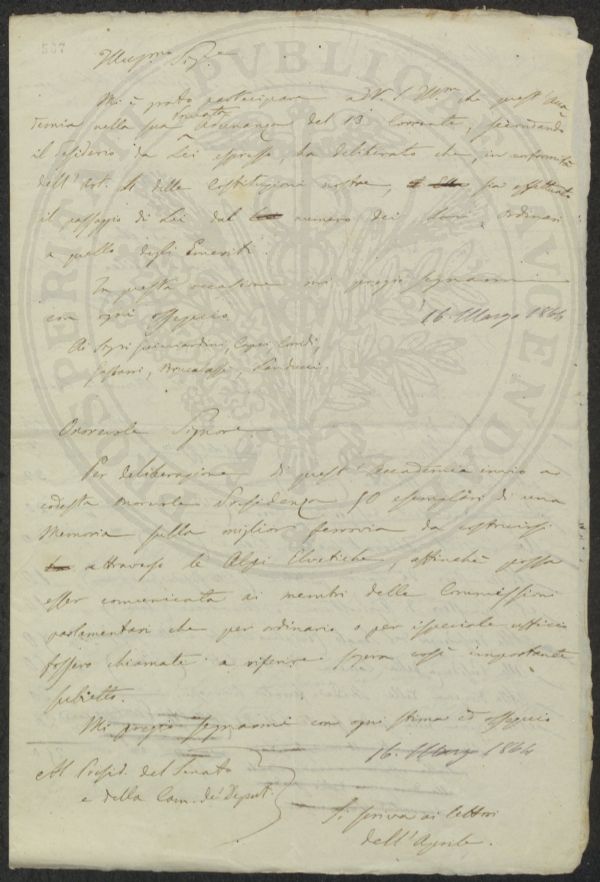 Illus.mo Sig.re
Mi è grato partecipare a V. S. Ill.ma che quest'Acca-
demia nella sua privata adunanza del 13 Corrente, secondando
il desiderio da Lei espresso, ha deliberato che, in conformità
dell'Art. delle Costituzioni nostre, sia effettuato
il passaggio di Lei dal numero dei Soci Ordinari
a quello degli Emeriti.
In questa occasione mi pregio segnarmi
con ogni ossequio
16. Marzo 1864
Ai Sigri Guicciardini, Capei, Conti,
Passerini, Landucci.
Onorevole Signore
Per deliberazione di quest'Accademia invio a
codesta onorevole Presidenza 50 esemplari di una
Memoria sulla miglior ferrovia da costruirsi
attraverso le Alpi Elvetiche, affinchè possa
esser comunicata ai membri delle Commissioni
parlamentari che per ordinario o per ispeciale ufficio
fossero chiamate a riferire sopra così importante
subietto.
Mi pregio segnarmi con ogni stima ed ossequio
16. Marzo 1864
Al Presid. del Senato
e della Cam. dei Deput.
Si scriva ai lettori
dell'Aprile.
PROSPERITATI PUBLICAE AUGENDAE